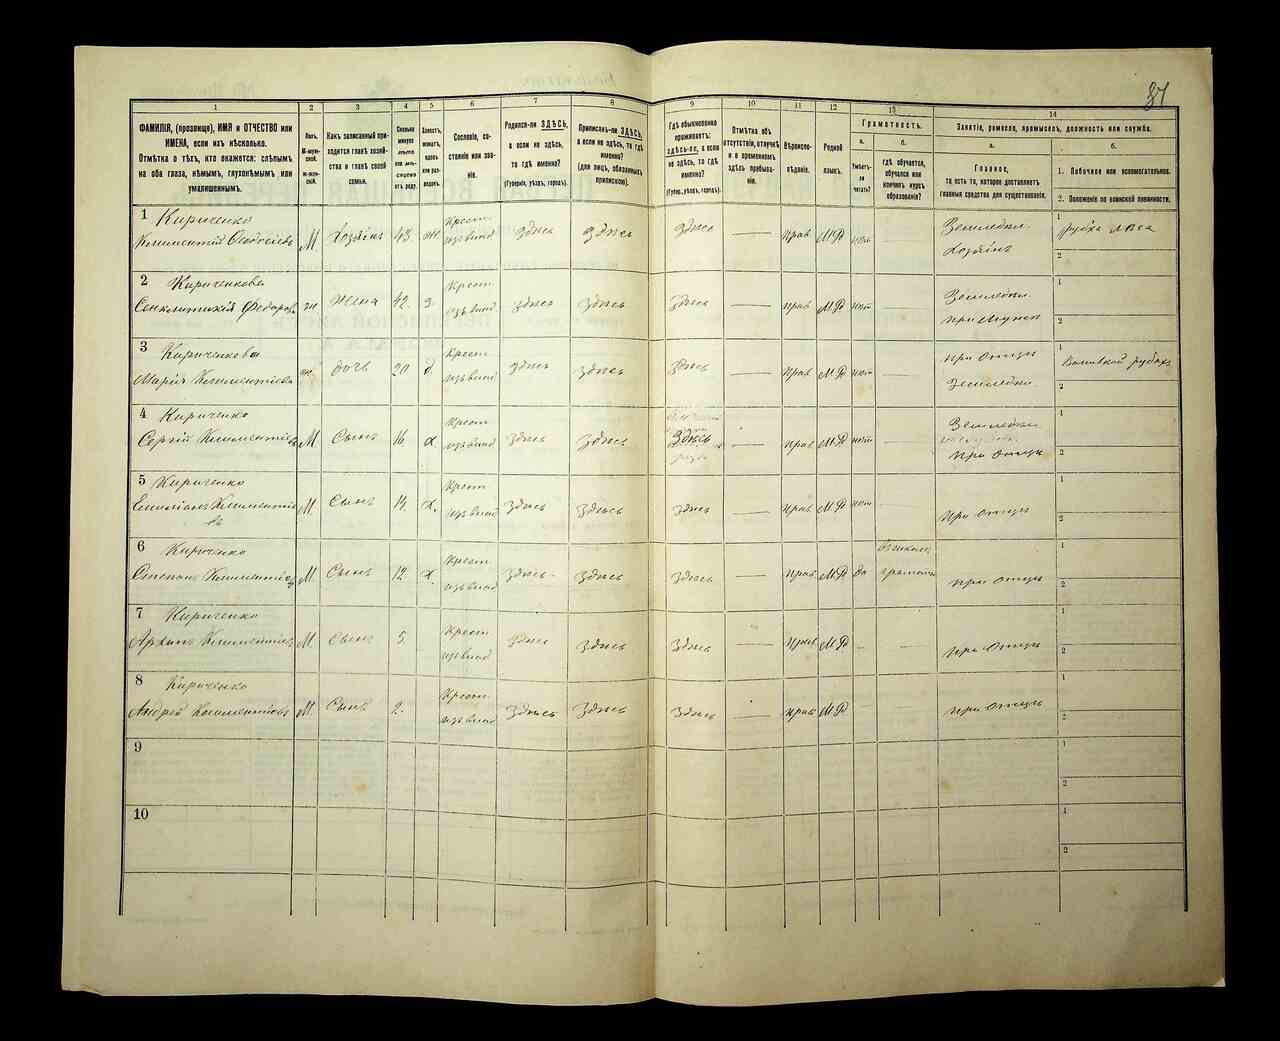 87
1
2
3
4
5
6
7
8
9
10
11
12
13
14
ФАМИЛІЯ, (прозвище), ИМЯ и ОТЧЕСТВО или
ИМЕНА, если ихъ нѣсколько.
Отмѣтка о тѣхъ, кто окажется: слѣпымъ
на оба глаза, нѣмымъ, глухонѣмымъ или
умалишеннымъ.
Полъ.
М-муж-
ской.
Ж-жен-
скій.
Какъ записанный при-
ходится главѣ хозяй-
ства и главѣ своей
семьи.
Сколько
минуло
лѣтъ
или мѣ-
сяцевъ
отъ роду.
Холостъ,
женатъ,
вдовъ
или раз-
веденъ.
Сословіе, со-
стояніе или зва-
ніе.
Родился-ли ЗДѢСЬ,
а если не здѣсь,
то гдѣ именно?
(Губернія, уѣздъ, городъ).
Приписанъ-ли ЗДѢСЬ,
а если не здѣсь, то гдѣ
именно?
(для лицъ, обязанныхъ
припискою).
Гдѣ обыкновенно
проживаетъ:
здѣсь-ли, а если
не здѣсь, то гдѣ
именно?
(Губер., уѣздъ, городъ).
Отмѣтка объ
отсутствіи, отлучкѣ
и о временномъ
здѣсь пребыва-
ніи.
Вѣроиспо-
вѣданіе.
Родной
языкъ.
Грамотность.
а.
Умѣетъ-
ли
читать?
б.
гдѣ обучается,
обучался или
кончилъ курсъ
образованія?
Занятіе, ремесло, промыселъ, должность или служба.
а.
Главное,
то есть то, которое доставляетъ
главныя средства для существованія.
б.
1. Побочное или вспомогательное.
2. Положеніе по воинской повинности.
1 Кириченко
Климентій Ѳеодосіевъ М Хозяинъ 43 ж Крест. изъ влад. Здѣсь Здѣсь Здѣсь — Прав М.Р — Земледѣл. Хозяинъ
1 рубка лѣса
2
2 Кириченкова
ж жена 42 з. Крест. изъ влад. Здѣсь Здѣсь Здѣсь — Прав М.Р нѣт — Земледѣл. при Мужѣ
1
2
3 Кириченкова
Марія Климентіева ж дочь 20 д Крест. изъ влад Здѣсь Здѣсь Здѣсь — Прав М.Р нѣт — при Отцѣ Земледѣл.
1
2
4 Кириченко
Сергій Климентіевъ М Сынъ 16 х. Крест. изъ влад Здѣсь Здѣсь Здѣсь — Прав М.Р нѣт — Земледѣл. при Отцѣ
1
2
5 Кириченко
Емиліанъ Климентіевъ М. Сынъ 14. х. Крест. изъ влад Здѣсь Здѣсь Здѣсь — Прав М.Р нѣт — При Отцѣ
1
2
6 Кириченко
Степанъ Климентіевъ М. Сынъ 12 х. Крест. изъ влад Здѣсь Здѣсь Здѣсь — Прав М.Р да при Отцѣ
1
2
7 Кириченко
Архипъ Климентіевъ М. Сынъ 5. Крест. изъ влад Здѣсь Здѣсь Здѣсь — Прав М.Р — — При Отцѣ
1
2
8 Кириченко
Андрей Климентіевъ М. Сынъ 2. Крест. изъ влад Здѣсь Здѣсь Здѣсь — Прав М.Р при Отцѣ
1
2
9
1
2
10
1
2